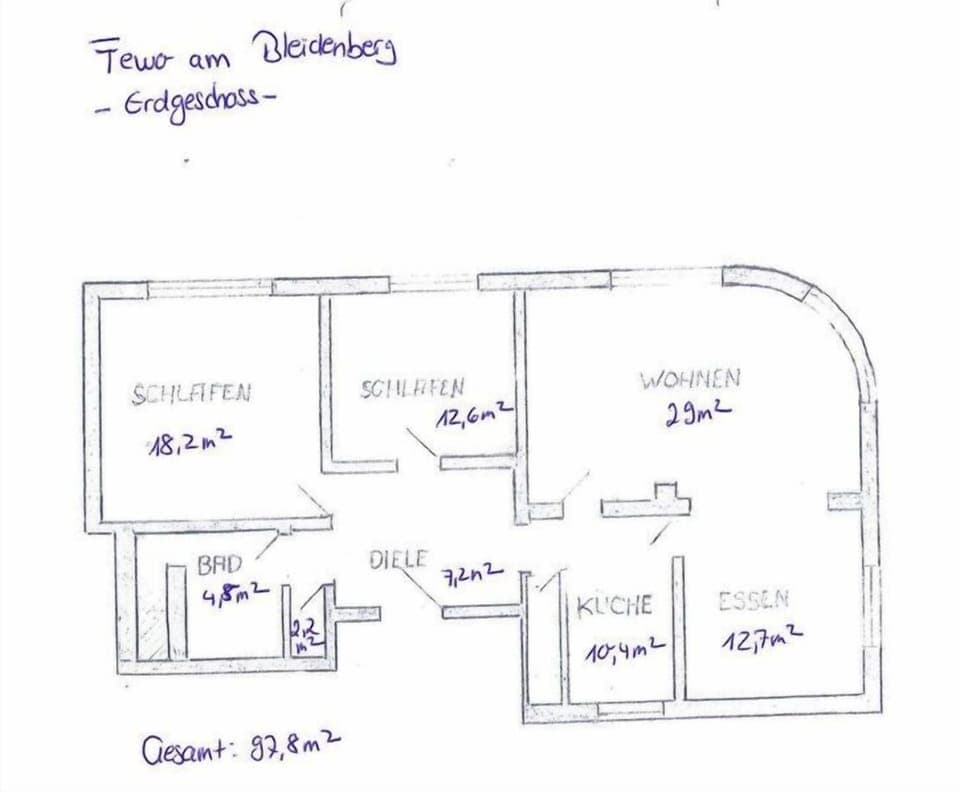 Fewo am Bleidenberg
- Erdgeschoss -
SCHLAFEN
18,2 m²
SCHLAFEN
12,6 m²
WOHNEN
29 m²
BAD
4,8 m²
2,2
m²
DIELE
7,2 m²
KÜCHE
10,4 m²
ESSEN
12,7 m²
Gesamt: 97,8 m²